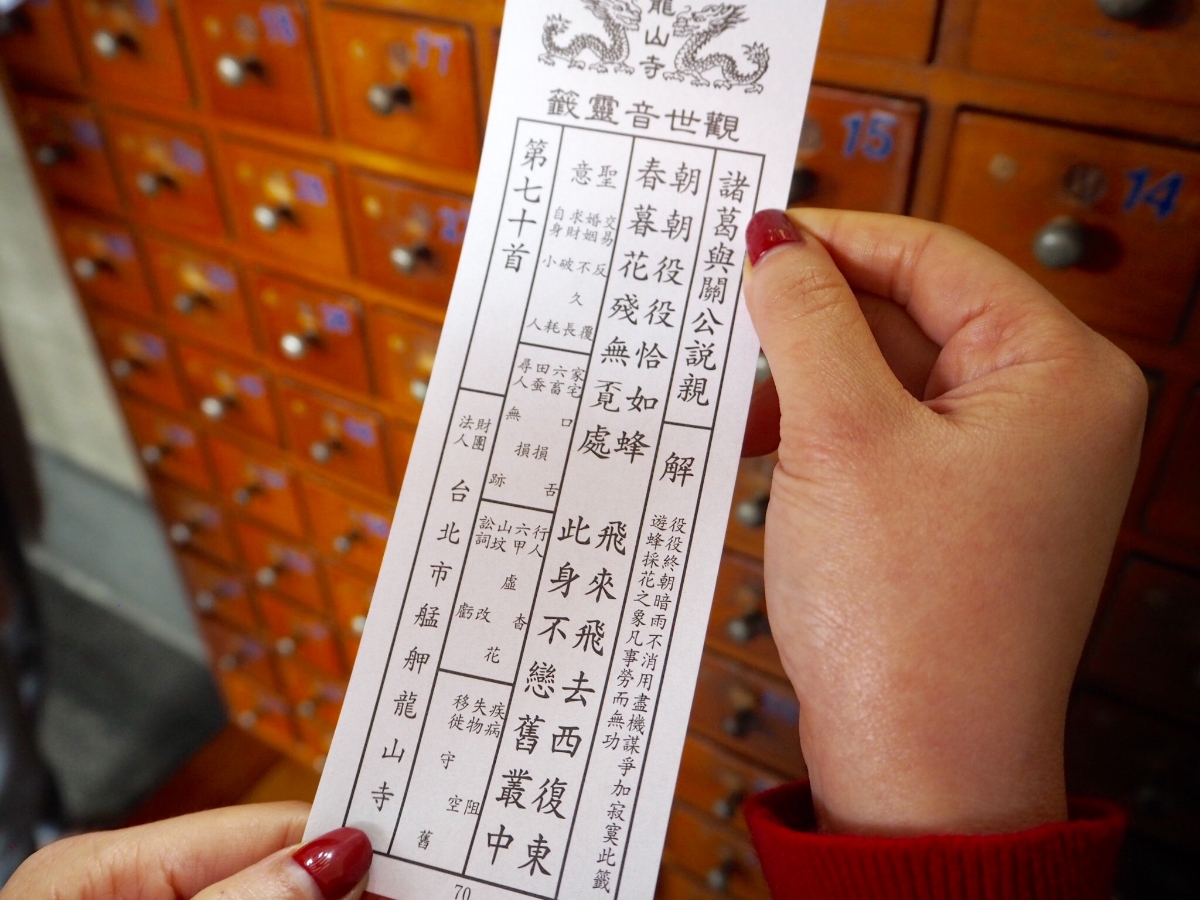 龍山寺
觀世音靈籤
諸葛與關公說親
解
役役終朝暗雨不消用盡機謀爭加寂寞此籤
遊蜂採花之象凡事勞而無功
朝朝役役恰如蜂 飛來飛去西復東
春暮花殘無覓處 此身不戀舊叢中
聖意
交易 反覆
婚姻 不久長
求財 破耗
自身 小人
家宅 口舌
六畜 損
田蚕 損
尋人 無跡
行人 杳
六甲 虛花
山坟 改
訟詞 虧
疾病 阻
失物 空
移徙 守舊
第七十首
財團法人 台北市艋舺龍山寺
70
18
17
15
14